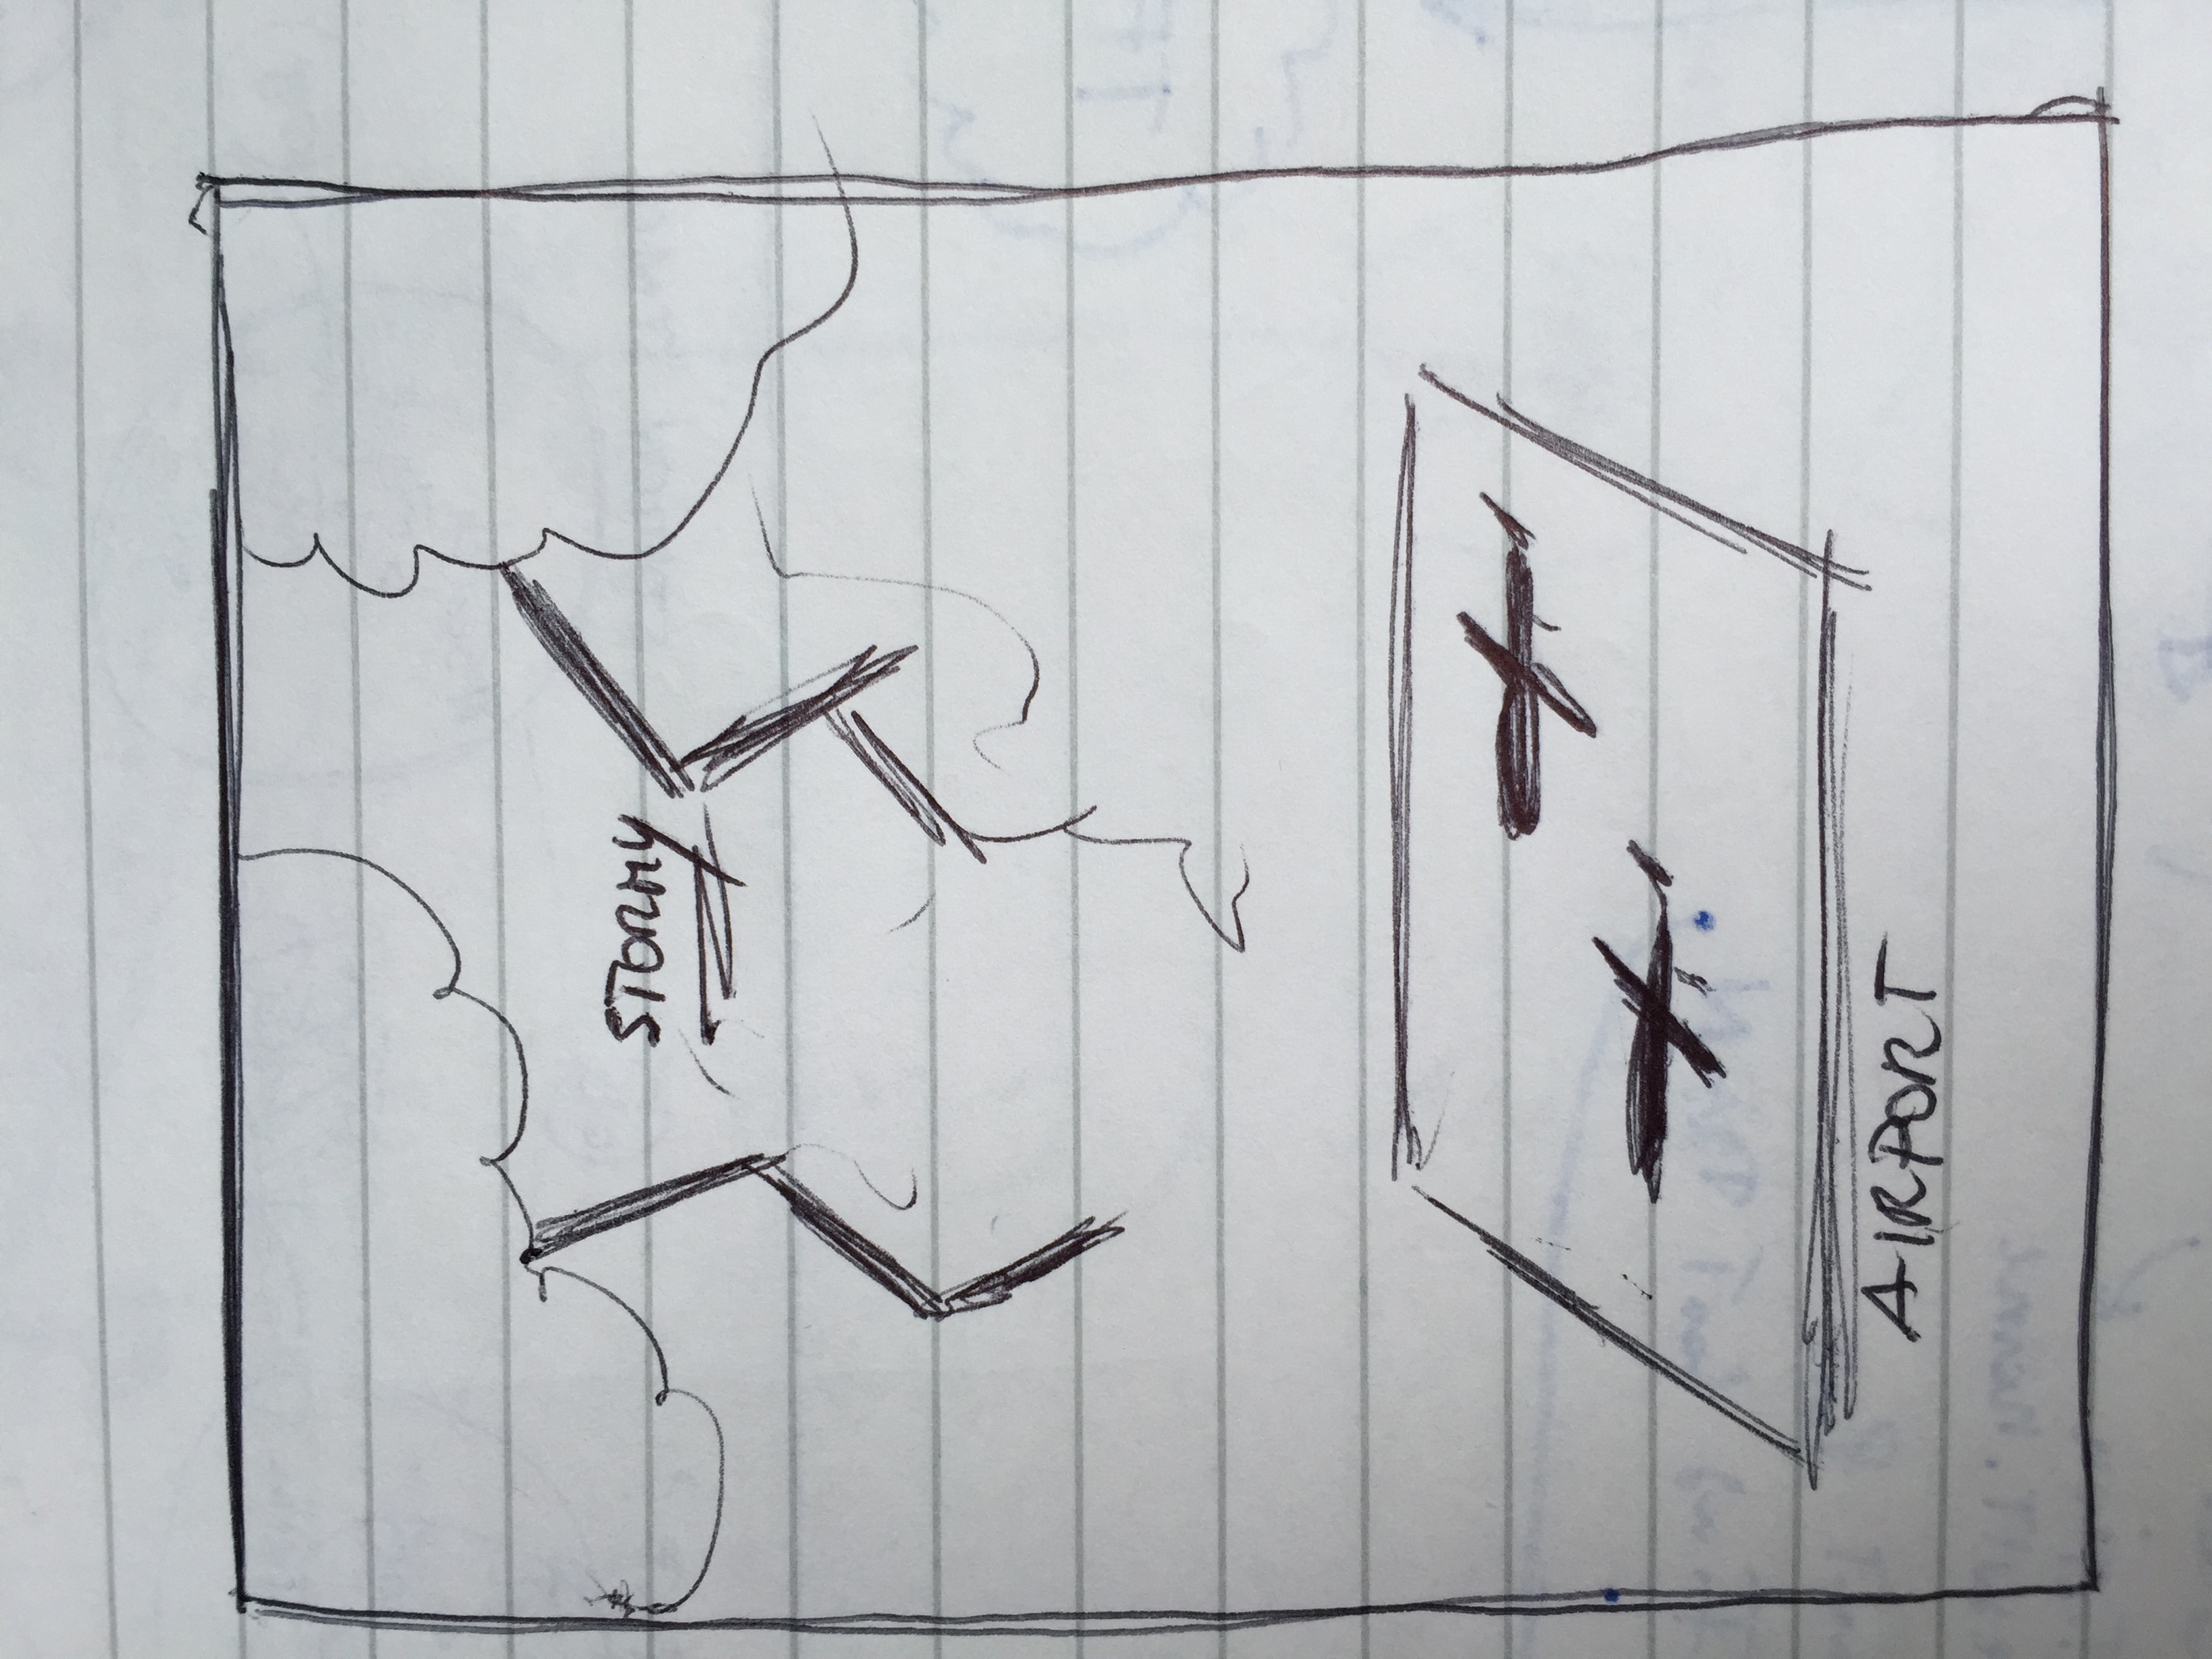 STORMY
AIRPORT